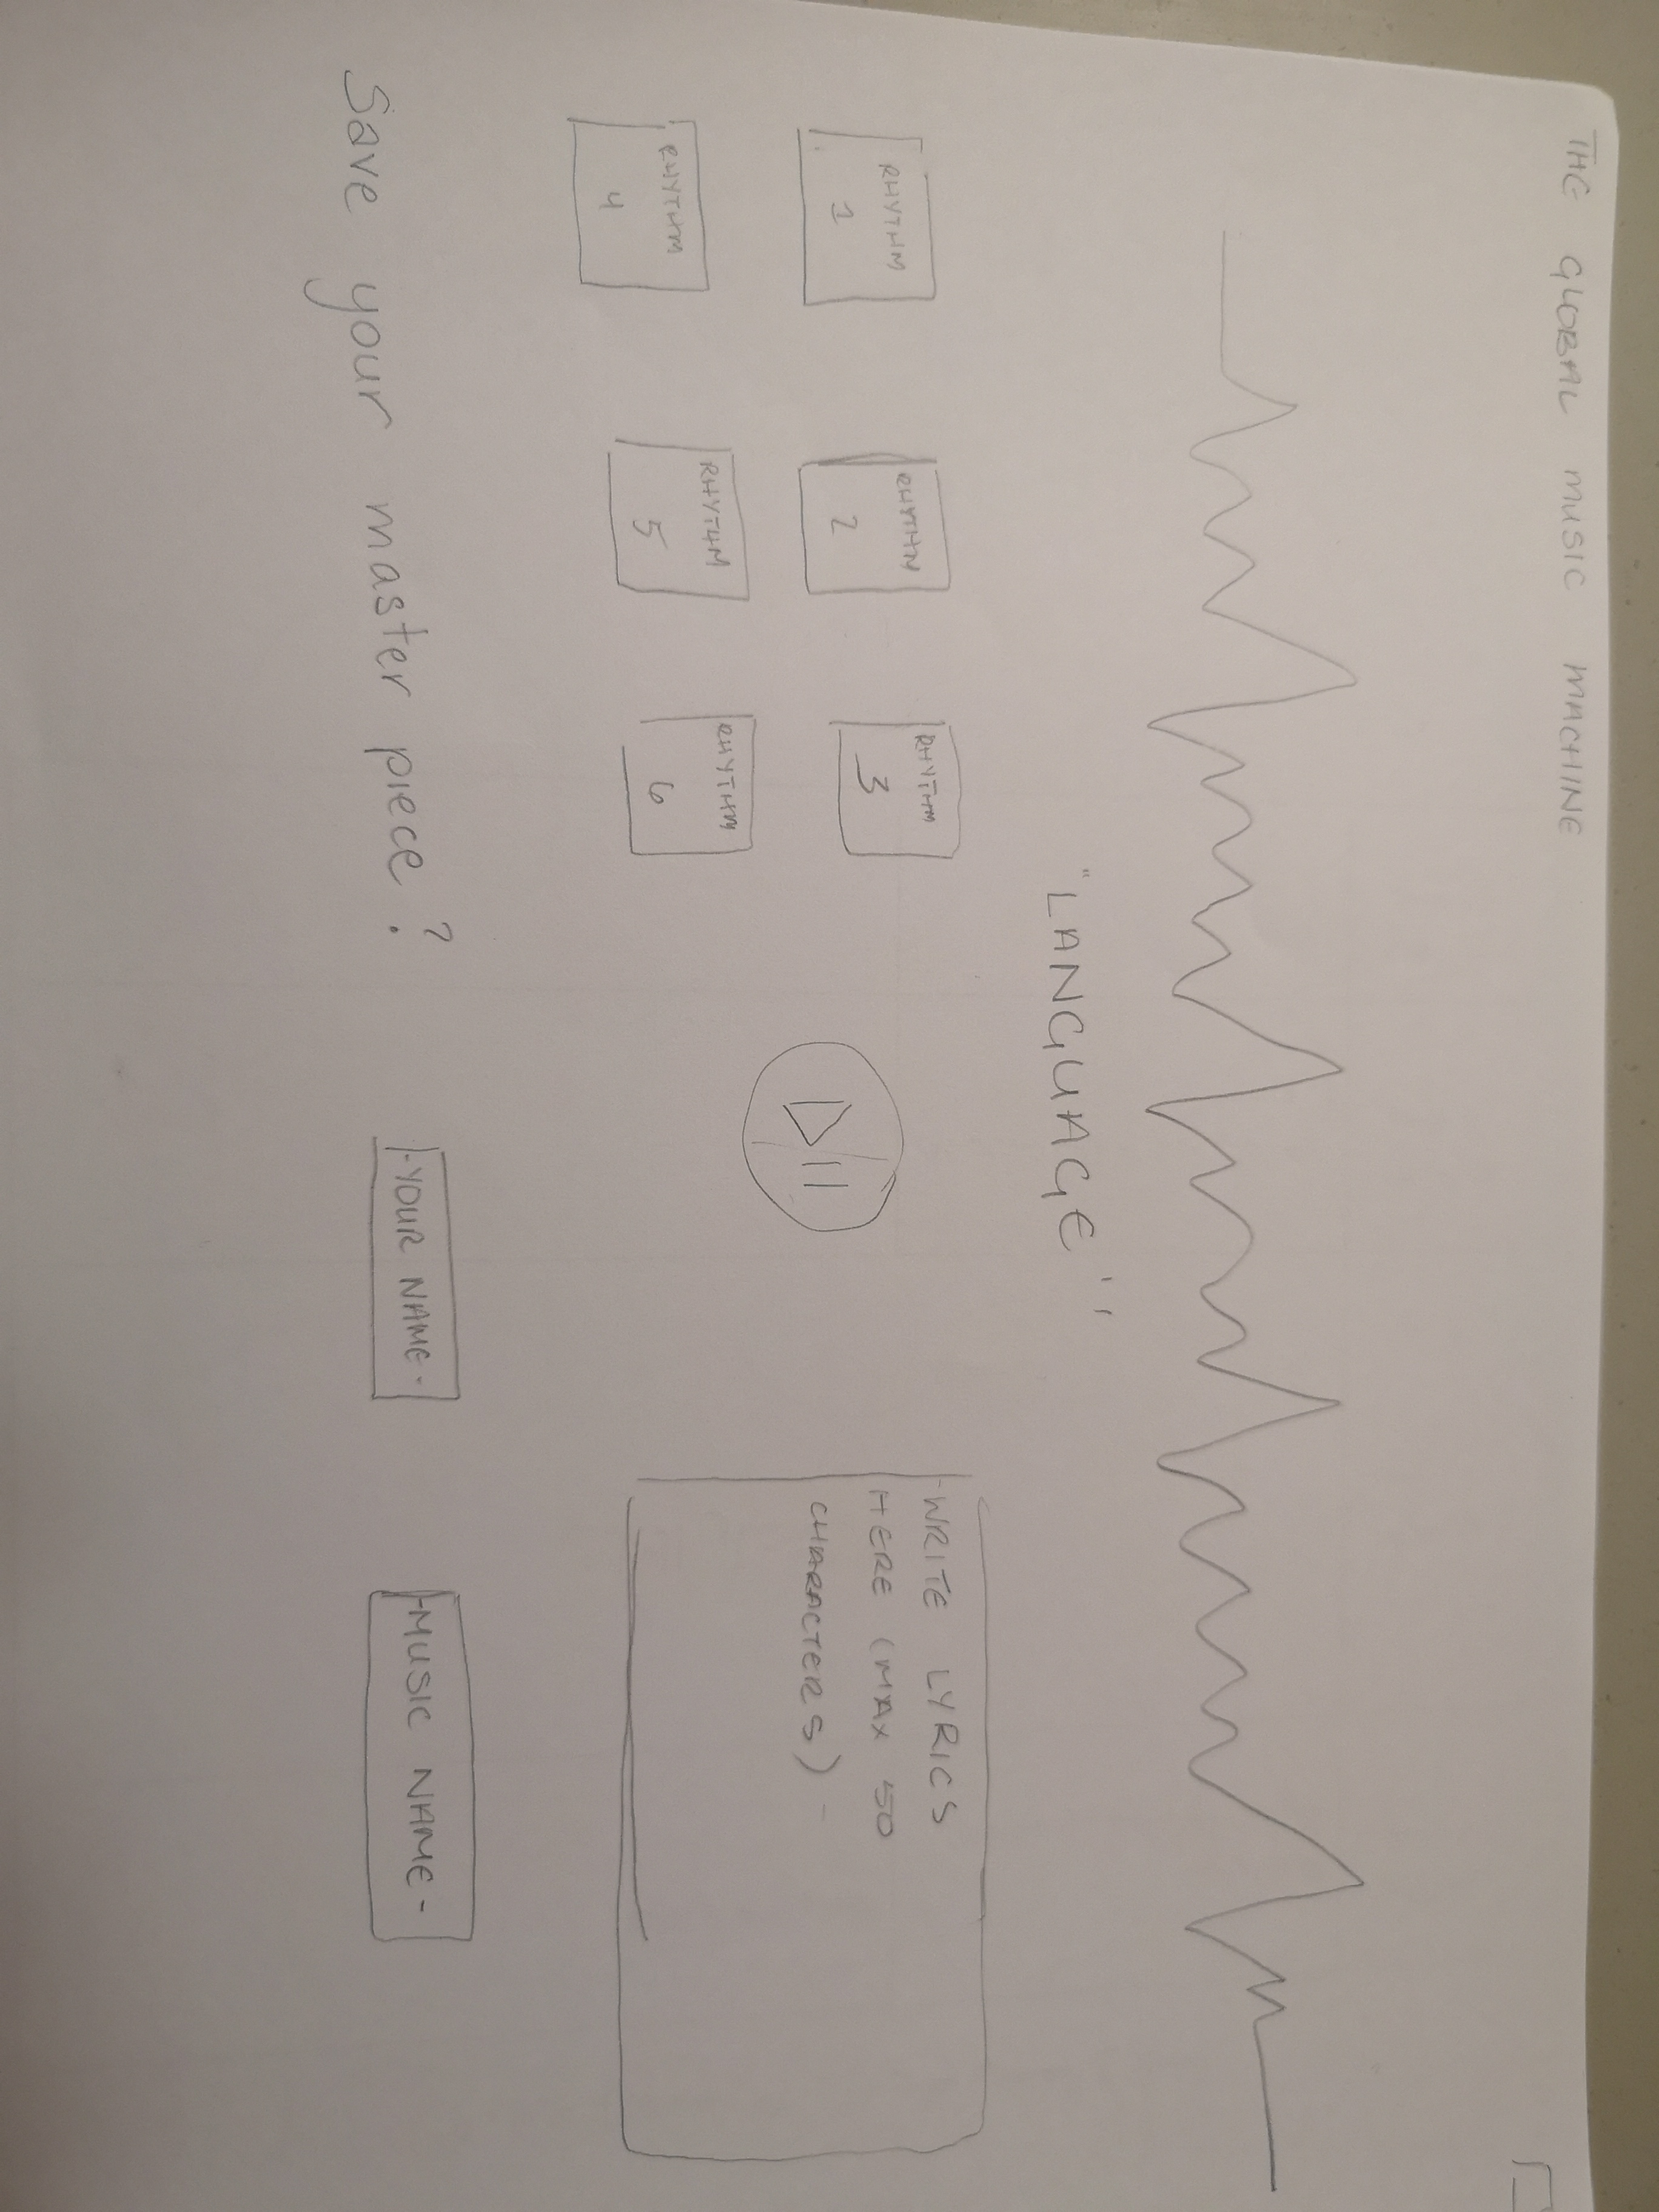 THE GLOBAL MUSIC MACHINE
"LANGUAGE"
RHYTHM
1
RHYTHM
2
RHYTHM
3
RHYTHM
4
RHYTHM
5
RHYTHM
6
-WRITE LYRICS
HERE (MAX 50
CHARACTERS) -
Save your master piece?
-YOUR NAME-
-MUSIC NAME-